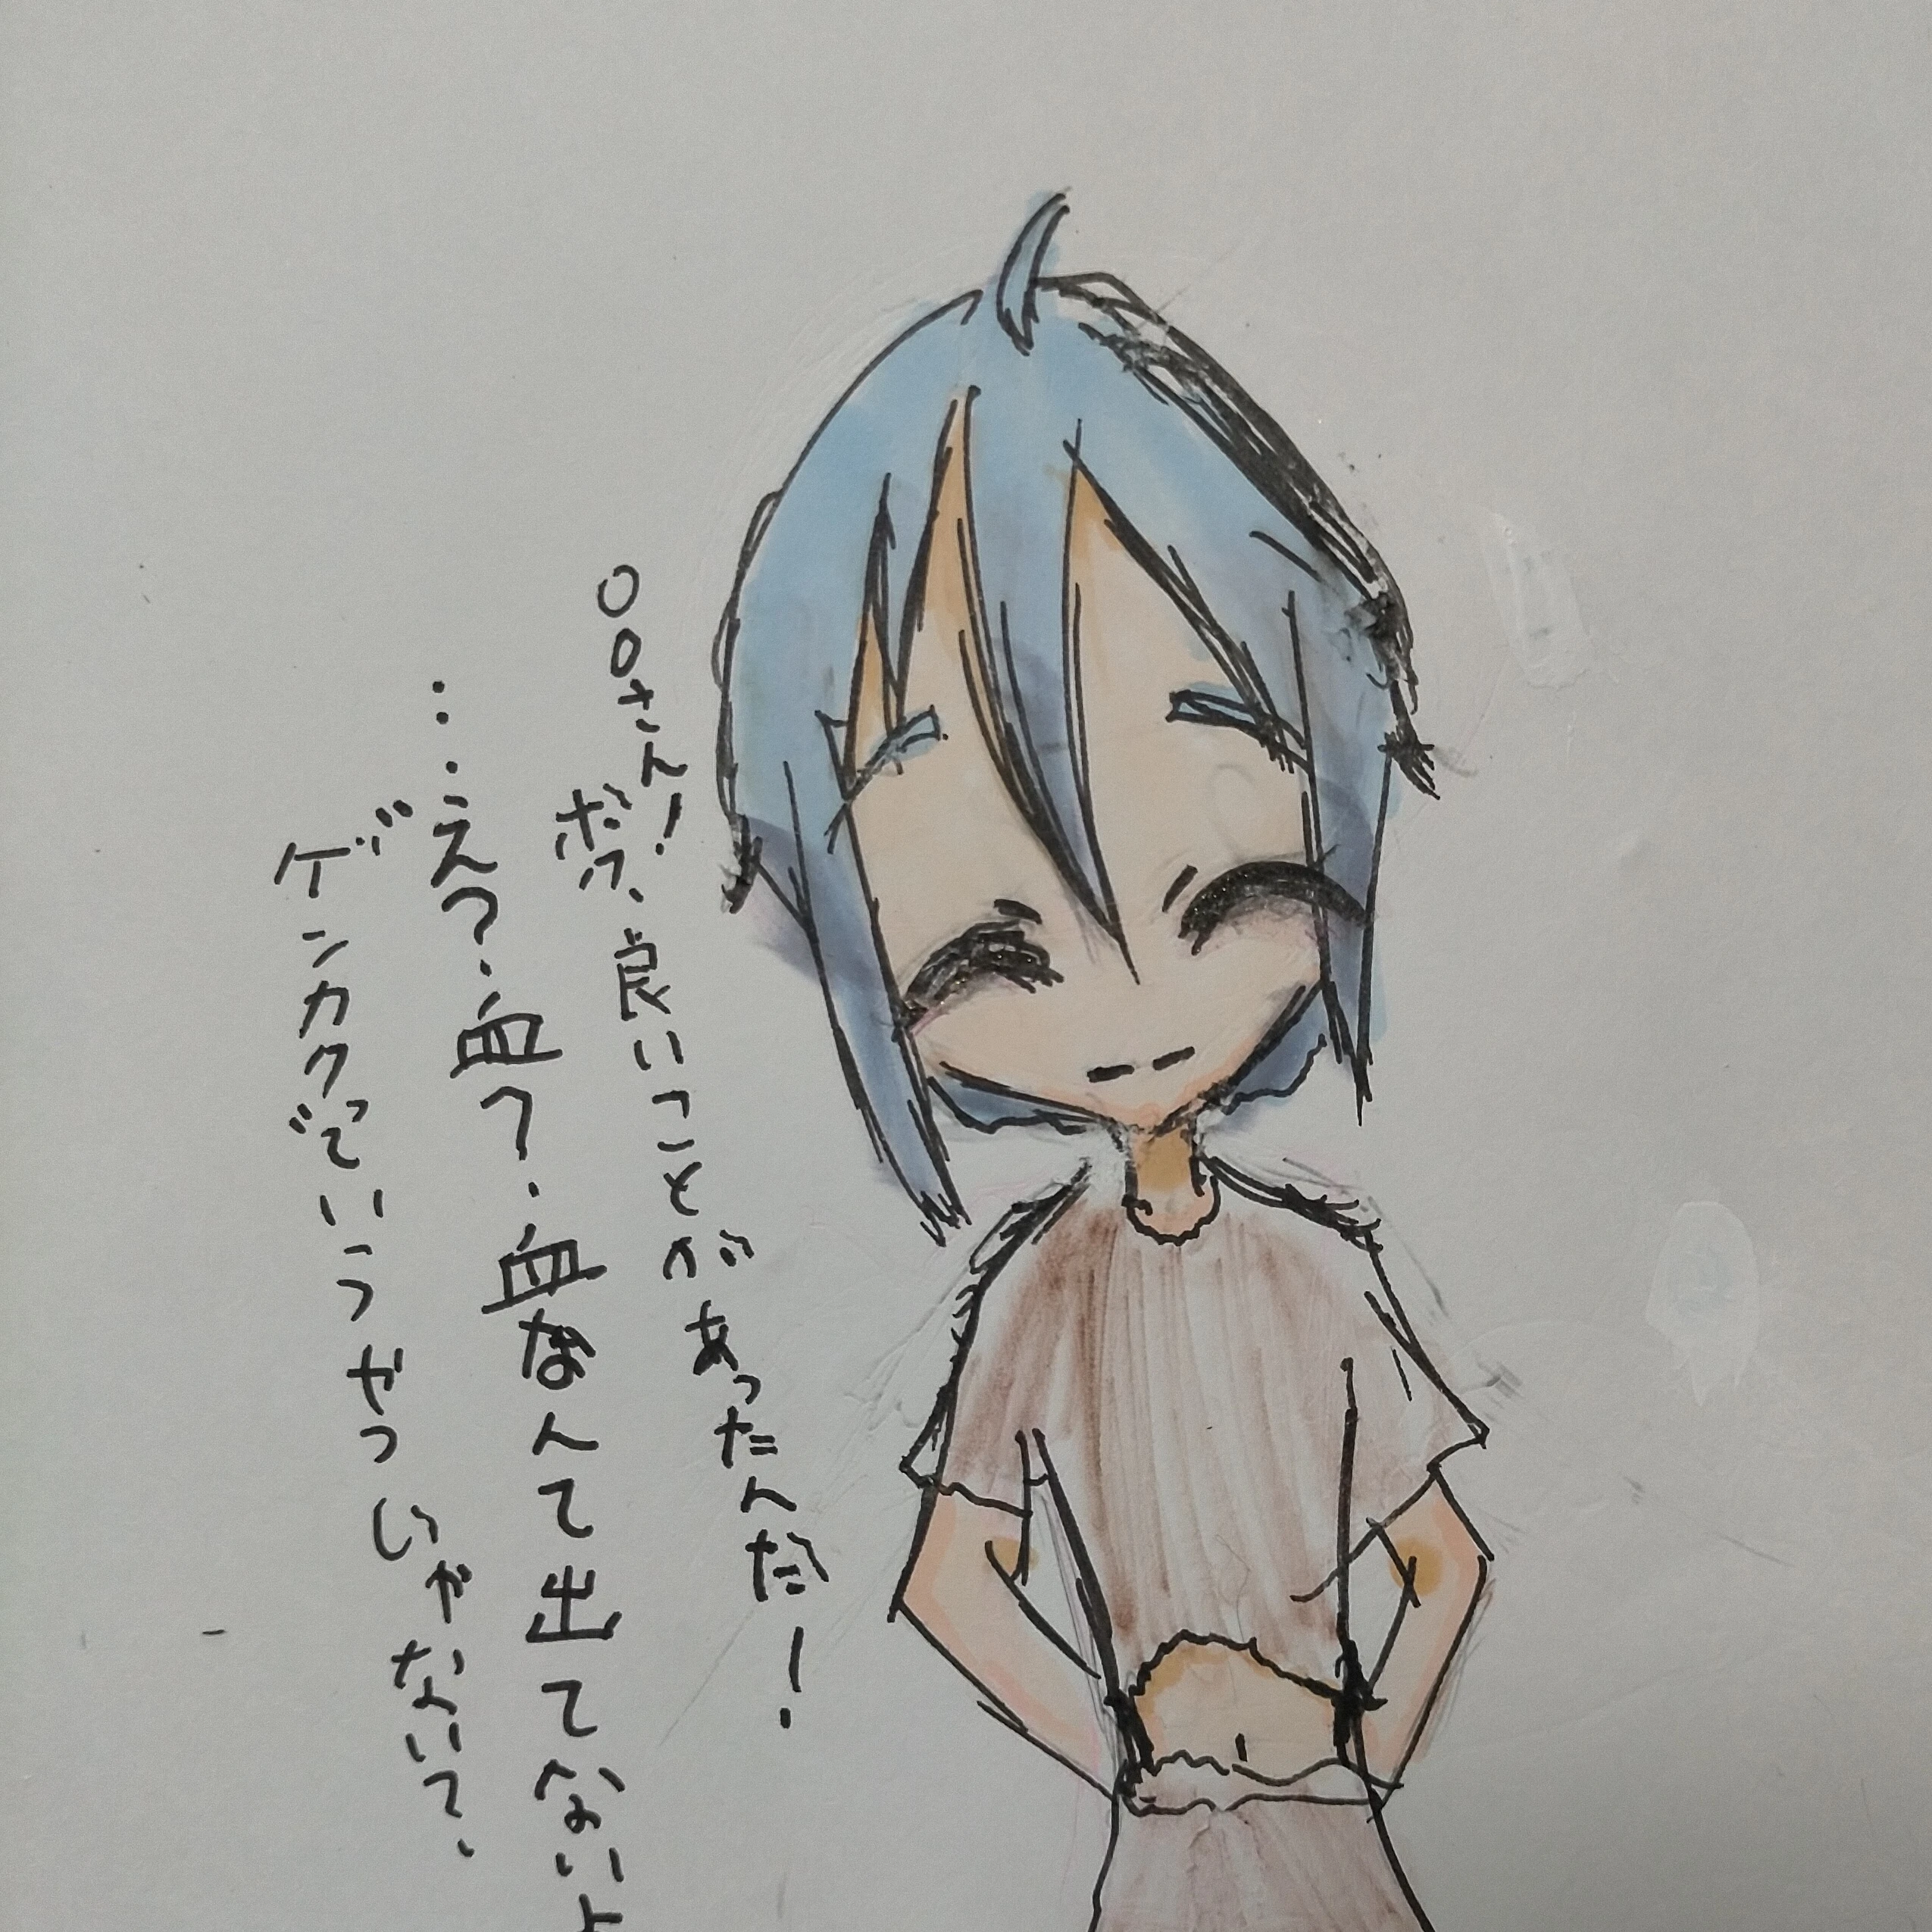 ○○さん!
ボク、良いことがあったんだ!
……え?血?血なんて出てないよ
ゲンカクっていうやつじゃない?